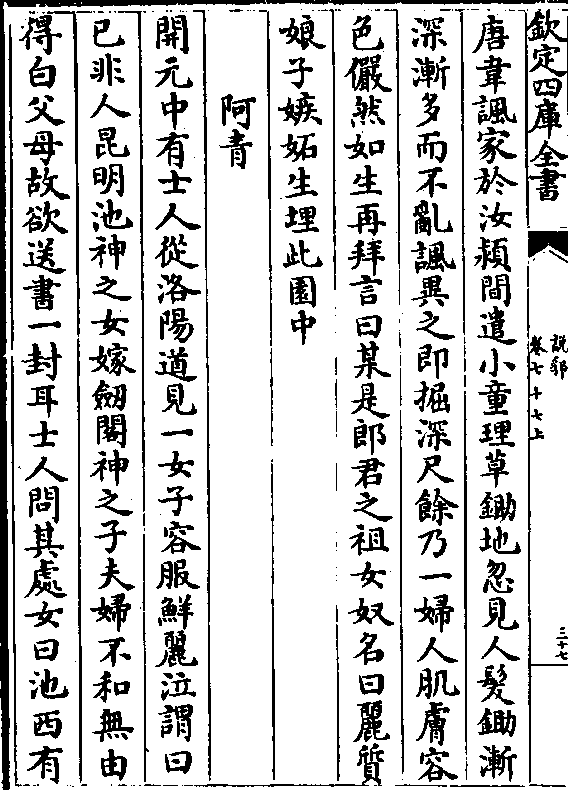 欽定四庫全書
說郛
卷七十七上
三十七
唐韋諷家於汝潁間遣小童理草鋤地忽見人髮鋤漸
深漸多而不亂諷異之即掘深尺餘乃一婦人肌膚容
色儼然如生再拜言曰某是郎君之祖女奴名曰麗質
娘子嫉妬生埋此園中
阿青
開元中有士人從洛陽道見一女子容服鮮麗泣謂曰
已非人昆明池神之女嫁劒閣神之子夫婦不和無由
得白父母故欲送書一封耳士人問其處女曰池西有